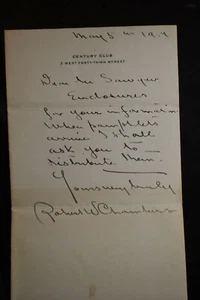 May 5th 1919
CENTURY CLUB
7 WEST FORTY-THIRD STREET
Dear Mr Sawyer
Enclosures
for your information.
When pamphlets
arrive I shall
ask you to
distribute them.
Yours very truly
Robert W Chambers